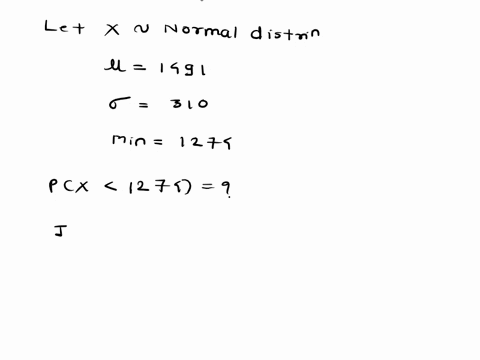 Let X ~ Normal distrin
μ = 1491
σ = 310
min = 1275
P(X < 1275) = ?
I